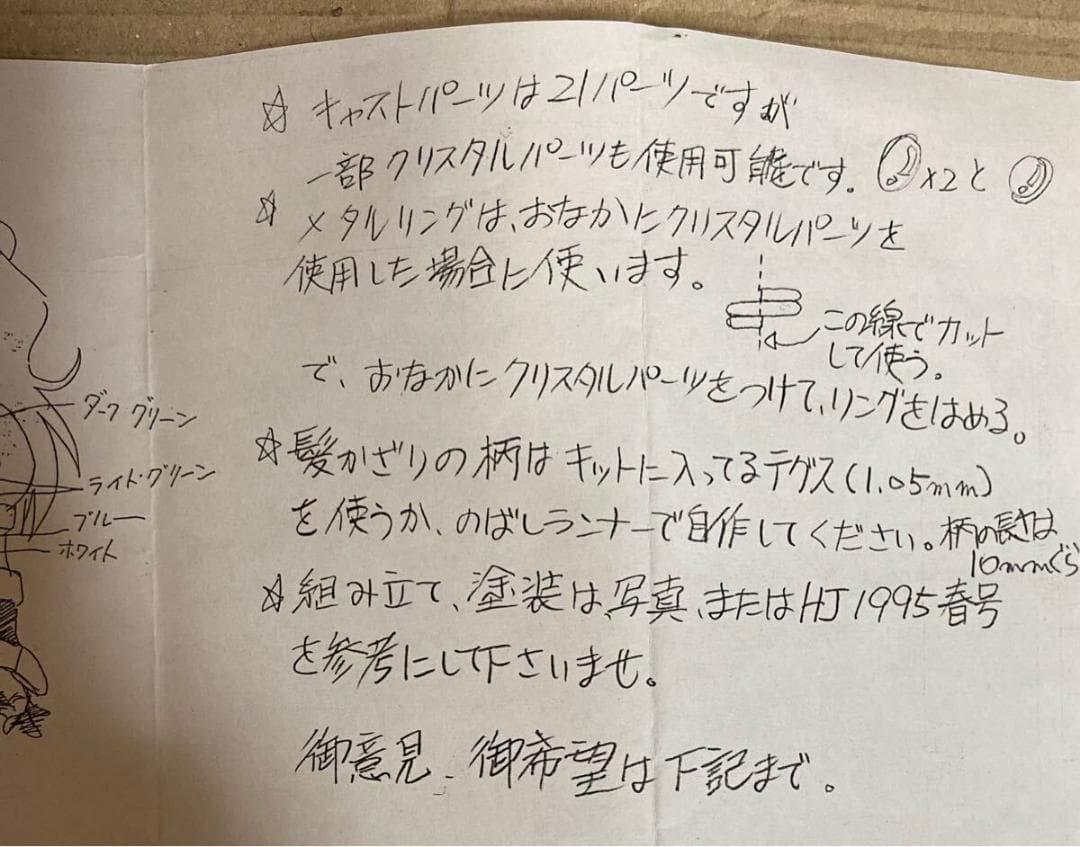 ☆ キャストパーツは21パーツですが
一部クリスタルパーツも使用可能です。 x2と
☆ メタルリングは、おなかにクリスタルパーツを
使用した場合に使います。
この線でカット
して使う。
で、おなかにクリスタルパーツをつけて、リングをはめる。
☆ 髪かざりの柄はキットに入ってるテグス(1.05mm)
を使うか、のばしランナーで自作してください。柄の長サは
10mmぐら
☆ 組み立て、塗装は、写真、またはHJ1995春号
を参考にして下さいませ。
御意見、御希望は下記まで。
ダーク グリーン
ライト・グリーン
ブルー
ホワイト